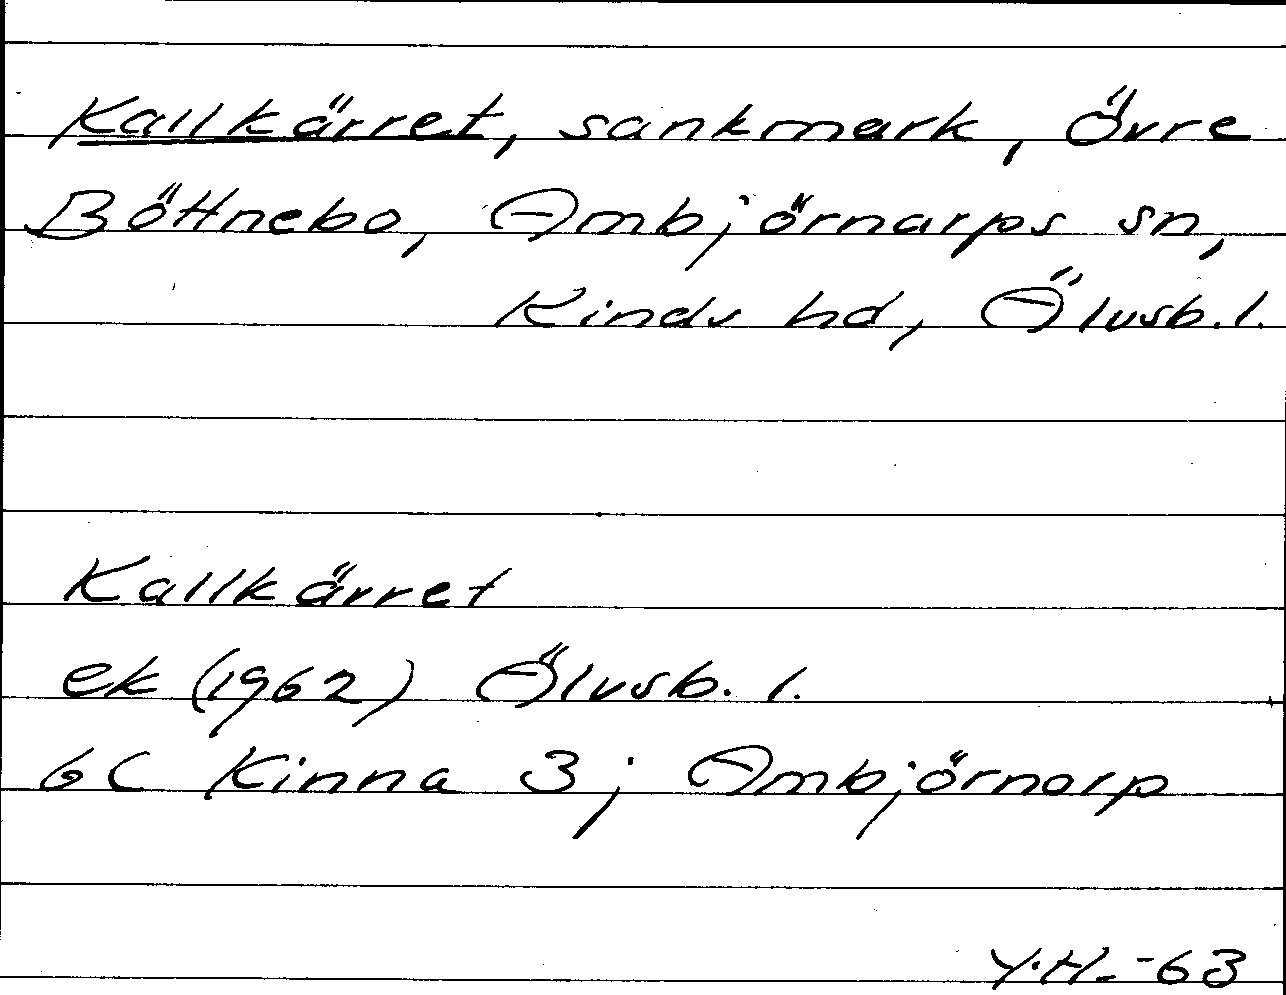 Kallkärret, sankmark, Övre
Böttnebo, Ambjörnarps sn,
Kinds hd, Älvsb. l.
Kallkärret
ek (1962) Älvsb. l.
6C Kinna 3; Ambjörnarp
Y.H. -63